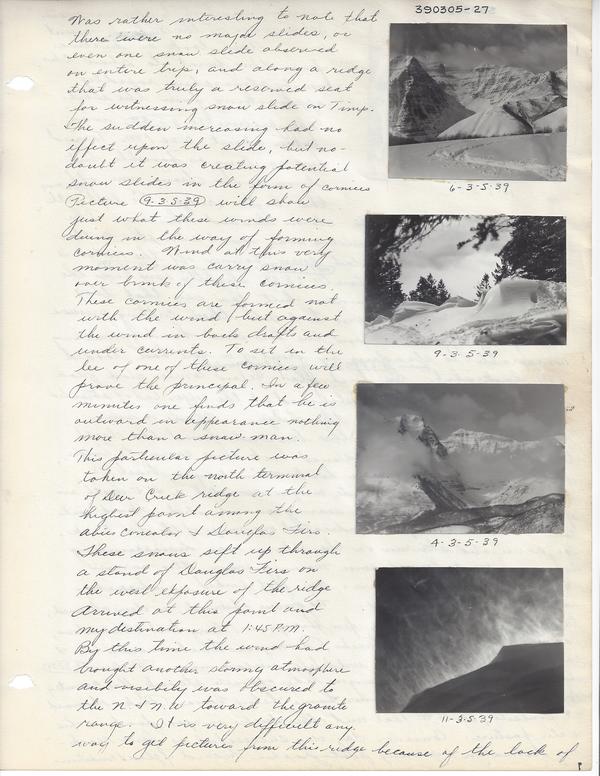 390305-27
Was rather interesting to note that
there were no major slides, or
even one snow slide observed
on entire trip, and along a ridge
that was truly a reserved seat
for witnessing snow slide on Timp.
The sudden increasing had no
effect upon the slide, but no-
doubt it was creating potential
snow slides in the form of cornices
Picture 9-3-5-39 will show
just what these winds were
doing in the way of forming
cornices. Wind at this very
moment was carry snow
over brink of these cornices.
These cornices are formed not
with the wind but against
the wind in back drafts and
under currents. To sit in the
lee of one of these cornices will
prove the principal. In a few
minutes one finds that he is
outward in appearance nothing
more than a snow man.
This particular picture was
taken on the north terminal
of Deer Creek ridge at the
highest point among the
abies concolor & Douglas Firs.
These snows sift up through
a stand of Douglas Firs on
the west exposure of the ridge
Arrived at this point and
my destination at 1:45 P.M.
By this time the wind had
brought another stormy atmosphere
and visibily was obscured to
the N & N.W toward the granite
range. It is very difficult any
way to get pictures from this ridge because of the lack of
6-3-5-39
9-3-5-39
4-3-5-39
11-3-5-39